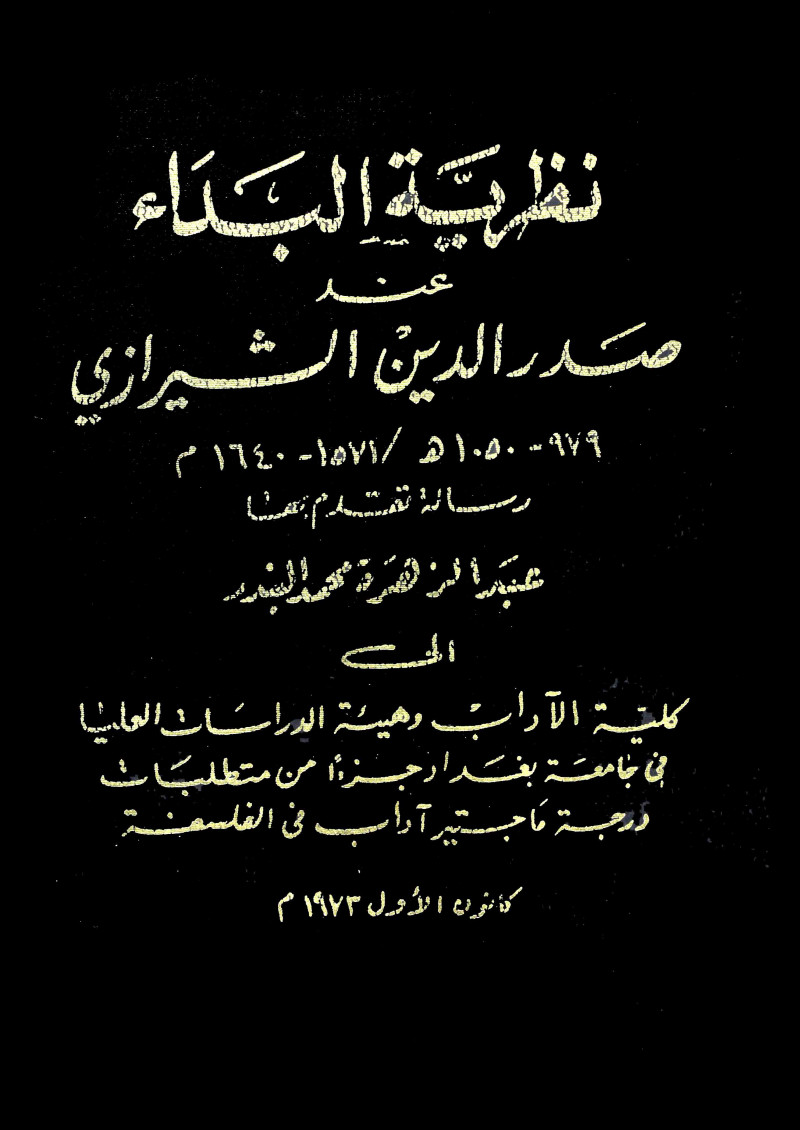 نظريَّة البَدَاء
عند
صَدر الدين الشيرازي
٩٧٩ - ١٠٥٠ هـ / ١٥٧١ - ١٦٤٠ م
رسالة تقدم بها
عَبد الزهرَة محمد البندر
الى
كليّة الآداب وهيئة الدراسَات العليا
في جَامعَة بغدَاد جزءًا من متطلبَات
درجة مَاجستير آداب في الفلسفة
كانون الأول ١٩٧٣ م